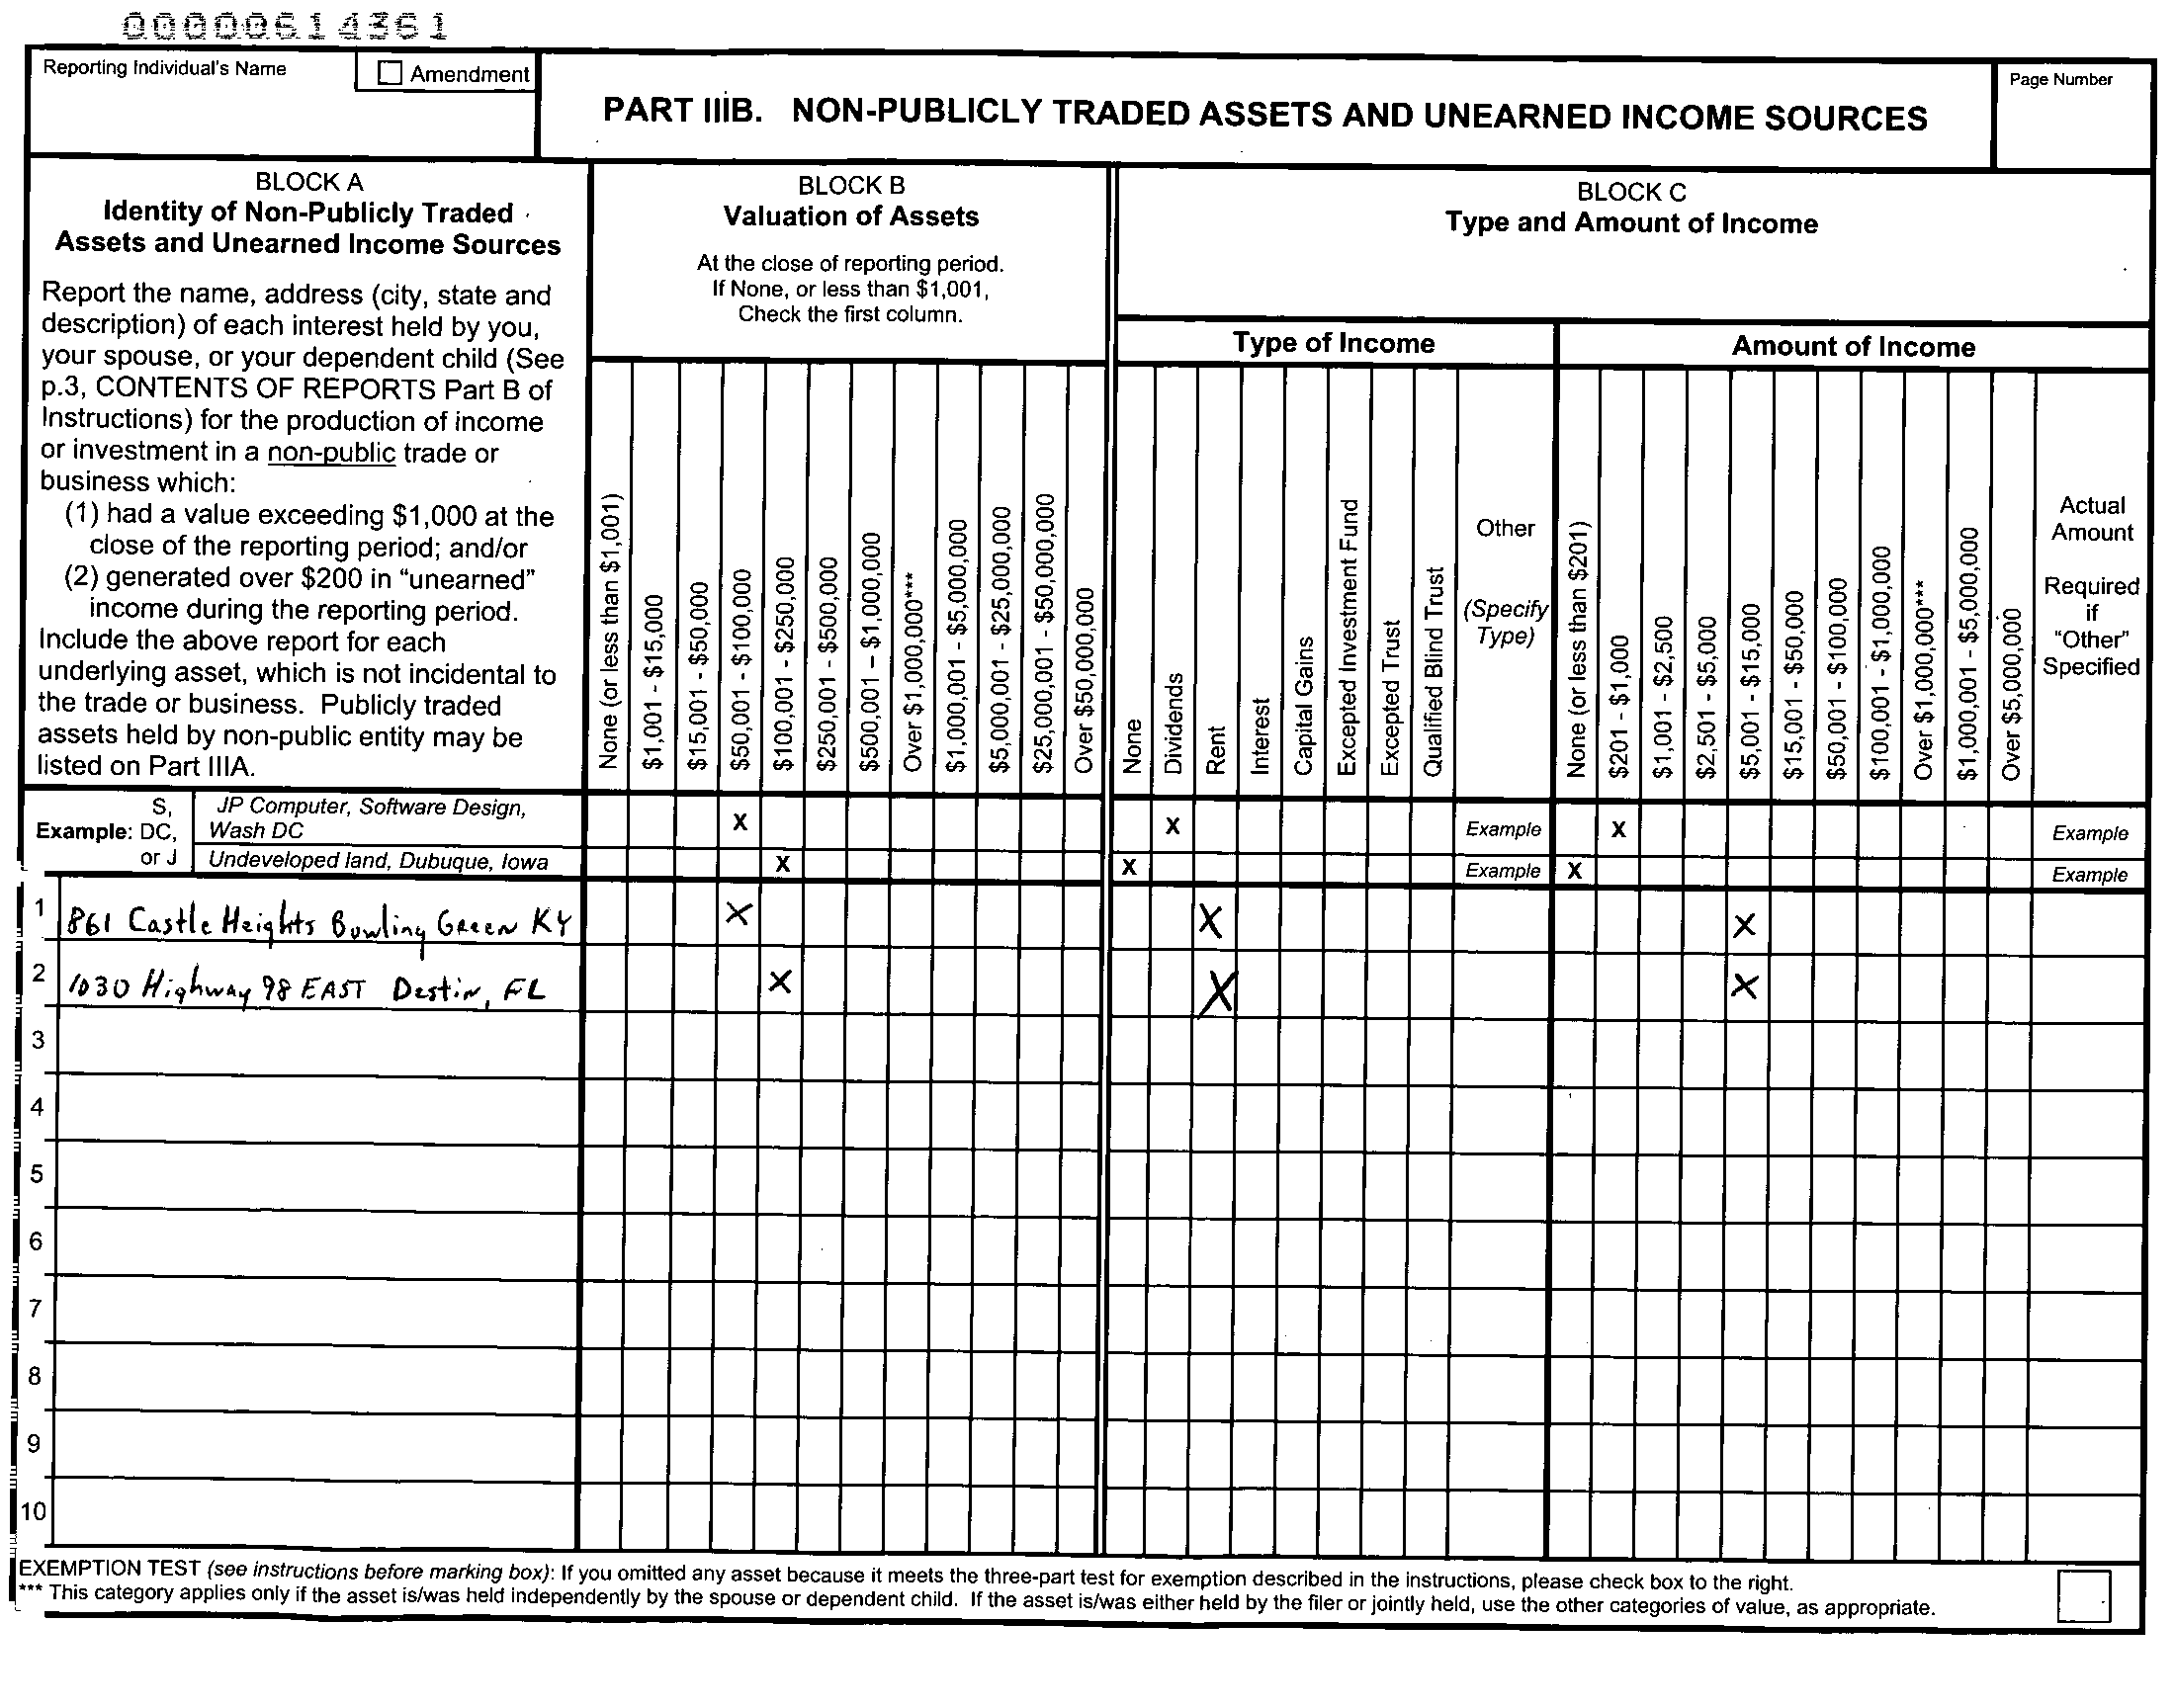 00000614361
Reporting Individual's Name
Amendment
PART IIIB. NON-PUBLICLY TRADED ASSETS AND UNEARNED INCOME SOURCES
Page Number
BLOCK A
Identity of Non-Publicly Traded
Assets and Unearned Income Sources
Report the name, address (city, state and
description) of each interest held by you,
your spouse, or your dependent child (See
p.3, CONTENTS OF REPORTS Part B of
Instructions) for the production of income
or investment in a non-public trade or
business which:
(1) had a value exceeding $1,000 at the
close of the reporting period; and/or
(2) generated over $200 in “unearned”
income during the reporting period.
Include the above report for each
underlying asset, which is not incidental to
the trade or business. Publicly traded
assets held by non-public entity may be
listed on Part IIIA.
BLOCK B
Valuation of Assets
At the close of reporting period.
If None, or less than $1,001,
Check the first column.
None (or less than $1,001)
$1,001 - $15,000
$15,001 - $50,000
$50,001 - $100,000
$100,001 - $250,000
$250,001 - $500,000
$500,001 – $1,000,000
Over $1,000,000***
$1,000,001 - $5,000,000
$5,000,001 - $25,000,000
$25,000,001 - $50,000,000
Over $50,000,000
BLOCK C
Type and Amount of Income
Type of Income
None
Dividends
Rent
Interest
Capital Gains
Excepted Investment Fund
Excepted Trust
Qualified Blind Trust
Other
(Specify
Type)
Amount of Income
None (or less than $201)
$201 - $1,000
$1,001 - $2,500
$2,501 - $5,000
$5,001 - $15,000
$15,001 - $50,000
$50,001 - $100,000
$100,001 - $1,000,000
Over $1,000,000***
$1,000,001 - $5,000,000
Over $5,000,000
Actual
Amount
Required
if
“Other”
Specified
Example: S, DC, or J
JP Computer, Software Design,
Wash DC X X Example X Example
Undeveloped land, Dubuque, Iowa X X Example X Example
1 861 Castle Heights Bowling Green KY X X X
2 1030 Highway 98 EAST Destin, FL X X X
3
4
5
6
7
8
9
10
EXEMPTION TEST (see instructions before marking box): If you omitted any asset because it meets the three-part test for exemption described in the instructions, please check box to the right.
*** This category applies only if the asset is/was held independently by the spouse or dependent child. If the asset is/was either held by the filer or jointly held, use the other categories of value, as appropriate.